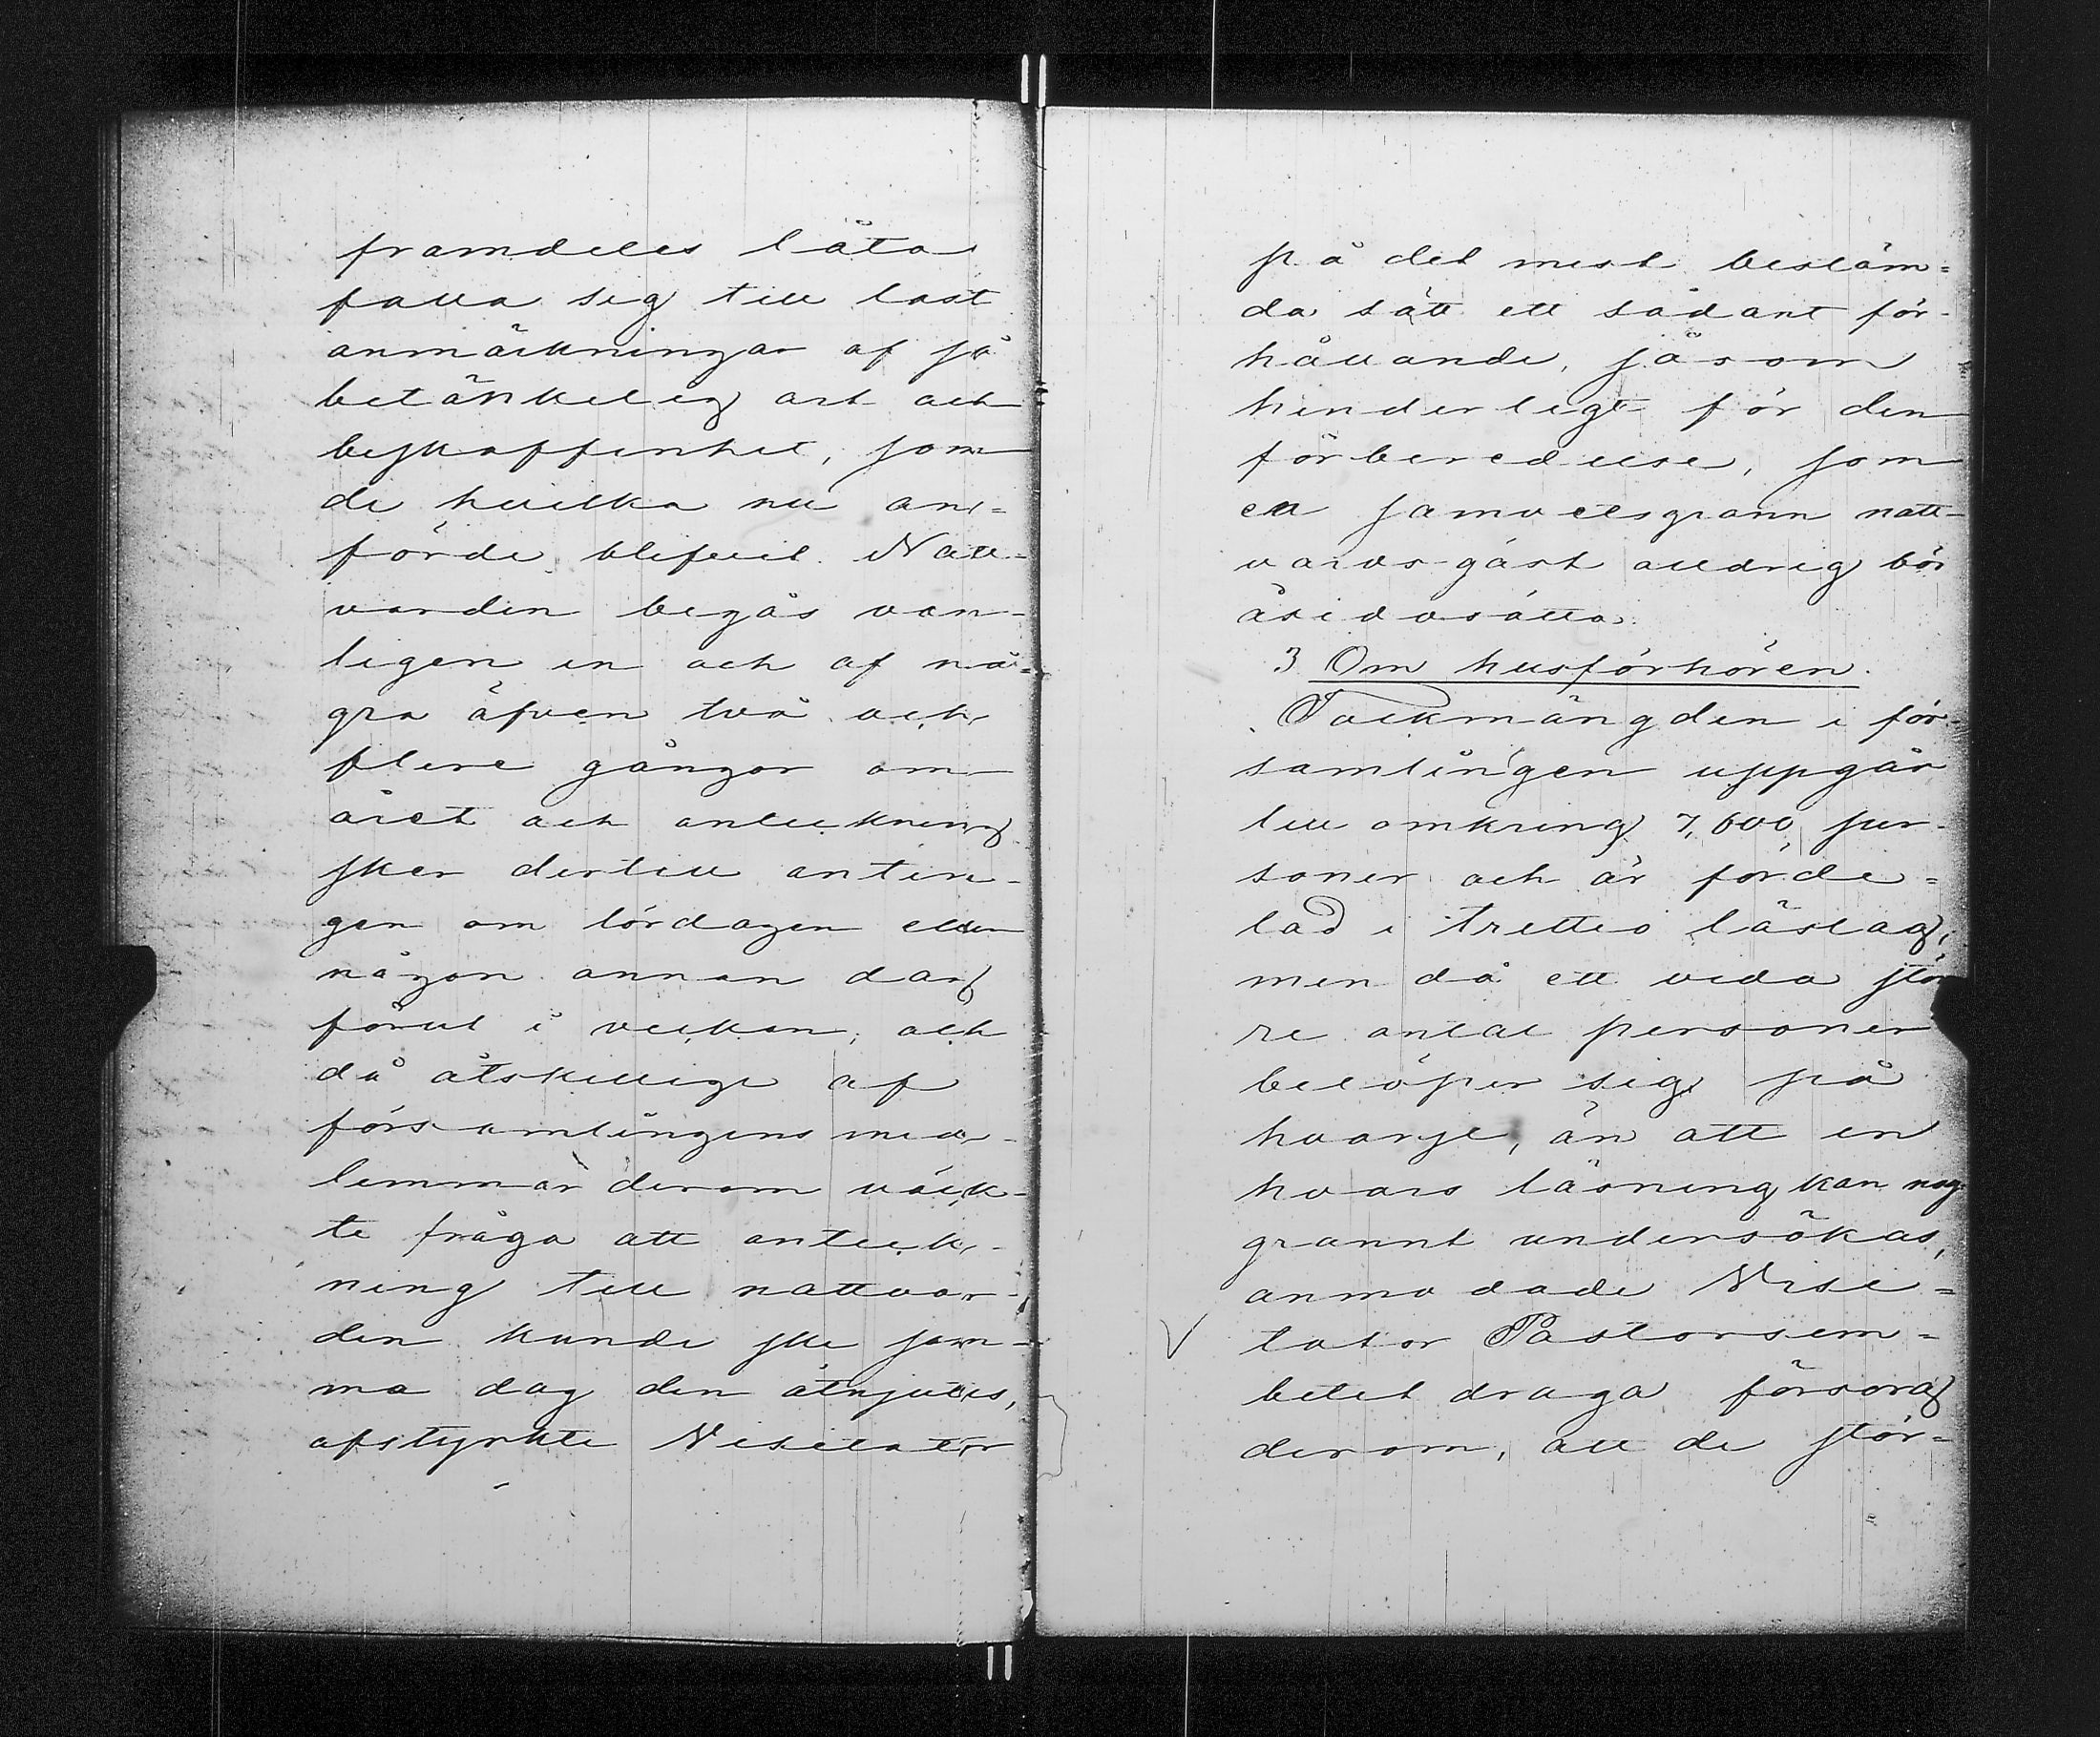 framdeles låta
falla sig till last
anmärkningar af så
betänkelig art och
beskaffenhet, som
de hvilka nu an-
förde blifvit. Natt-
varden begås van-
ligen en och af nå-
gra äfven två och
flere gånger om
året och anteckning
sker dertill antin-
gen om lördagen eller
någon annan dag
förut i veckan, och
då åtskillige af
församlingens med-
lemmar derom väck-
te fråga att anteck-
ning till nattvar-
den kunde ske sam-
ma dag den åtnjutes,
afstyrkte Visitator
på det mest bestäm=
da sätt ett sådant för-
hållande, såsom
hinderligt för den
förberedelse, som
en samvetsgrann natt-
vards-gäst aldrig bör
åsidosätta.
3 Om husförhören.
Folkmängden i för-
samlingen uppgår
till omkring 7,600 per-
soner och är förde=
lad i trettio läslag,
men då ett vida stör
re antal personer
belöper sig på
hvarje, än att en
hvars läsning kan nog-
grannt undersökas,
anmodade Visi=
V tator Pastorsem=
betet draga försorg
derom, att de stör=